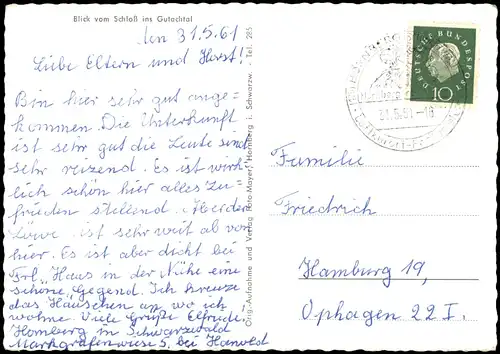 Blick vom Schloß ins Gutachtal
den 31.5.61
Liebe Eltern und Horst!
Bin hier sehr gut ange-
kommen. Die Unterkunft
ist sehr gut die Leute sind
sehr reizend. Es ist wirk-
lich schön hier alles Zu-
frieden stellend. Herder
Löwe ist sehr weit ab von
hier. Es ist aber dicht bei
Frl. Haas in der Nähe eine
schöne Gegend. Ich kreuze
das Häuschen an wo ich
wohne Viele Grüße Elfriede,
Homberg in Schwarzwald
Markgrafenwiese 5. bei Hanold
Orig.-Aufnahme und Verlag Foto-Mayer, Hornberg i. Schwarzw. - Tel. 285
DEUTSCHE BUNDESPOST
10
31.5.61-18
Familie
Friedrich
Hamburg 19,
Ophagen 22 I.